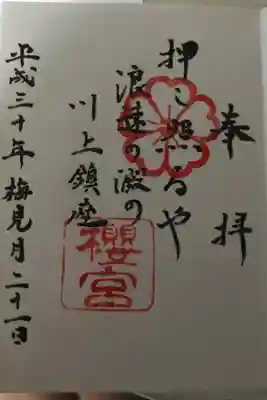 奉拝
押し照るや
浪速の淀の
川上鎮座
櫻宮
平成三十年梅見月二十一日